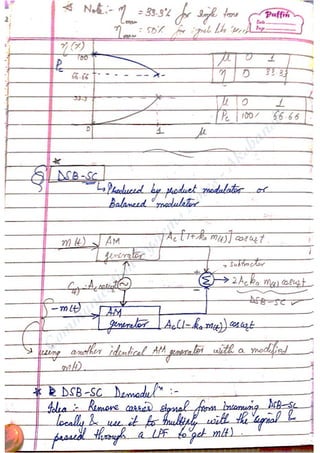 Note:- η max = 33.3% for single tone
η max = 50% for
Puffin
Date
Page
2
η(%)
Pc
100
66.66
33.3
0
1
μ
μ 0 1
η 0 33.33
μ 0 1
Pc 100% 66.66
DSB-SC
Produced by product modulator or
Balanced modulator
m(t) AM generator Ac[1+ka m(t)] cosωct
Subtractor
c(t) = Ac cosωct
2Ac ka m(t) cosωct
DSB-SC
-m(t) AM generator Ac(1-ka m(t)) cosωct
using another identical AM generator with a modified
m(t).
DSB-SC Demodulⁿ :-
Idea :- Remove carrier signal from incoming DSB-SC
locally & use it to multiply with the signal &
passed through a LPF to get m(t).